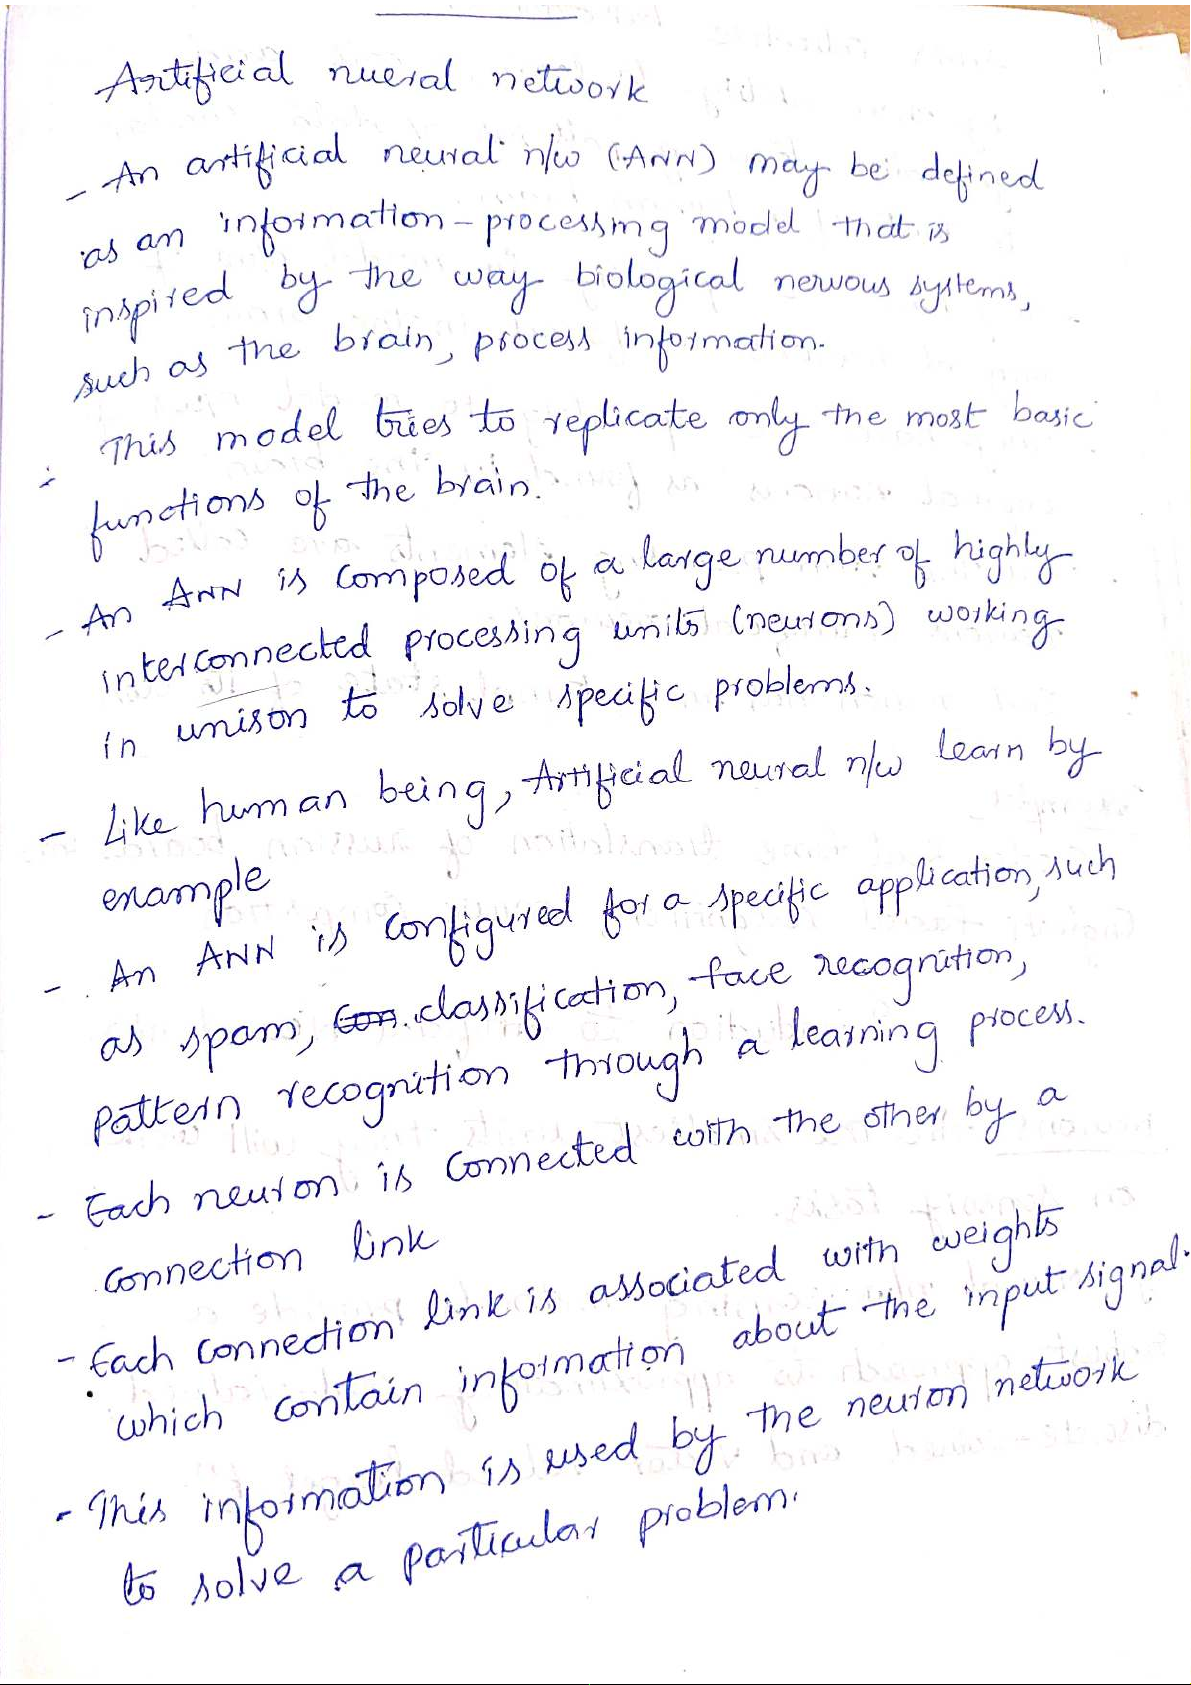 Artificial nueral network
- An artificial neural n/w (ANN) may be defined
as an information-processing model that is
inspired by the way biological nervous systems,
such as the brain, process information.
- This model tries to replicate only the most basic
functions of the brain.
- An ANN is composed of a large number of highly
interconnected processing units (neurons) working
in unison to solve specific problems.
- Like human being, Artificial neural n/w learn by
example
- An ANN is configured for a specific application, such
as spam, classification, face recognition,
pattern recognition through a learning process.
- Each neuron is connected with the other by a
connection link
- Each connection link is associated with weights
which contain information about the input signal.
- This information is used by the neuron network
to solve a particular problem.